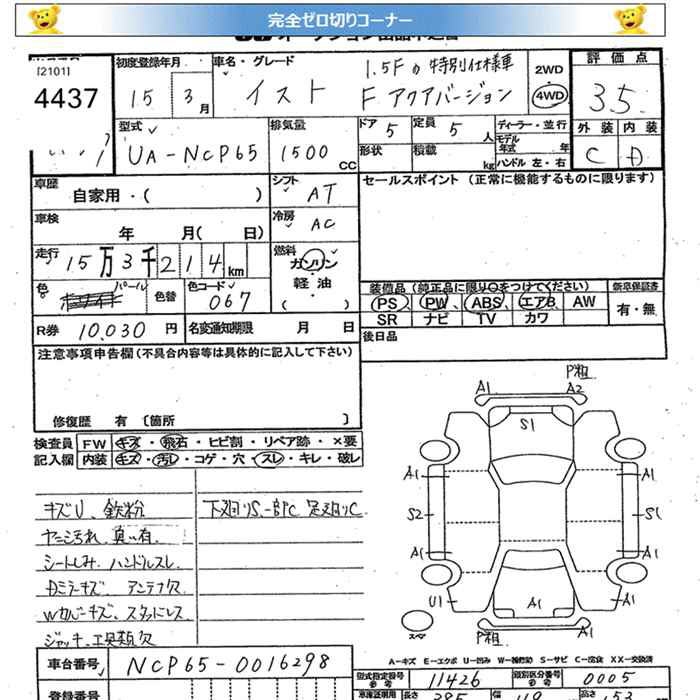 完全ゼロ切りコーナー
[2101]
4437
初度登録年月
15 3月
車名・グレード
1.5Fの特別仕様車
イスト F アクアバージョン
2WD
4WD
評価点
3.5
型式
UA-NCP65
排気量
1500 CC
ドア 5
定員 5 人
形状
積載 kg
ディーラー・並行
モデル年式 年
ハンドル 左・右
外装 内装
C D
車歴
自家用・( )
シフト AT
セールスポイント (正常に機能するものに限ります)
車検
年 月( 日)
冷房 AC
走行
15万3千214km
燃料
ガソリン
軽油
( )
色
パール
色替
色コード
067
装備品 (純正品に限り○をつけてください)
新車保証書
PS PW、 ABS エアB AW
SR ナビ TV カワ
有・無
R券 10,030 円
名変通知期限 月 日
後日品
注意事項申告欄 (不具合内容等は具体的に記入して下さい)
修復歴 有 〔箇所 〕
検査員記入欄
FW キズ・飛石・ヒビ割・リペア跡・×要
内装 キズ・汚レ・コゲ・穴・スレ・キレ・破レ
キズU、鉄粉
下廻りS、一部C 足廻りC
ヤニ汚れ、臭い有
シートしみ、ハンドルスレ
Dミラーキズ アンテナ欠
Wカバーキズ、スタッドレス
ジャッキ、工具類欠
P粗
A1 A2
S1
A1 A1
S2 S1
A1 A1
U1 A1
スペア
P粗 A1
A-キズ E-エクボ U-凹み W-補修跡 S-サビ C-腐食 XX-交換済
車台番号
NCP65-0016298
型式指定番号
11426
類別区分番号
0005
登録番号
車庫証明用
長さ 385